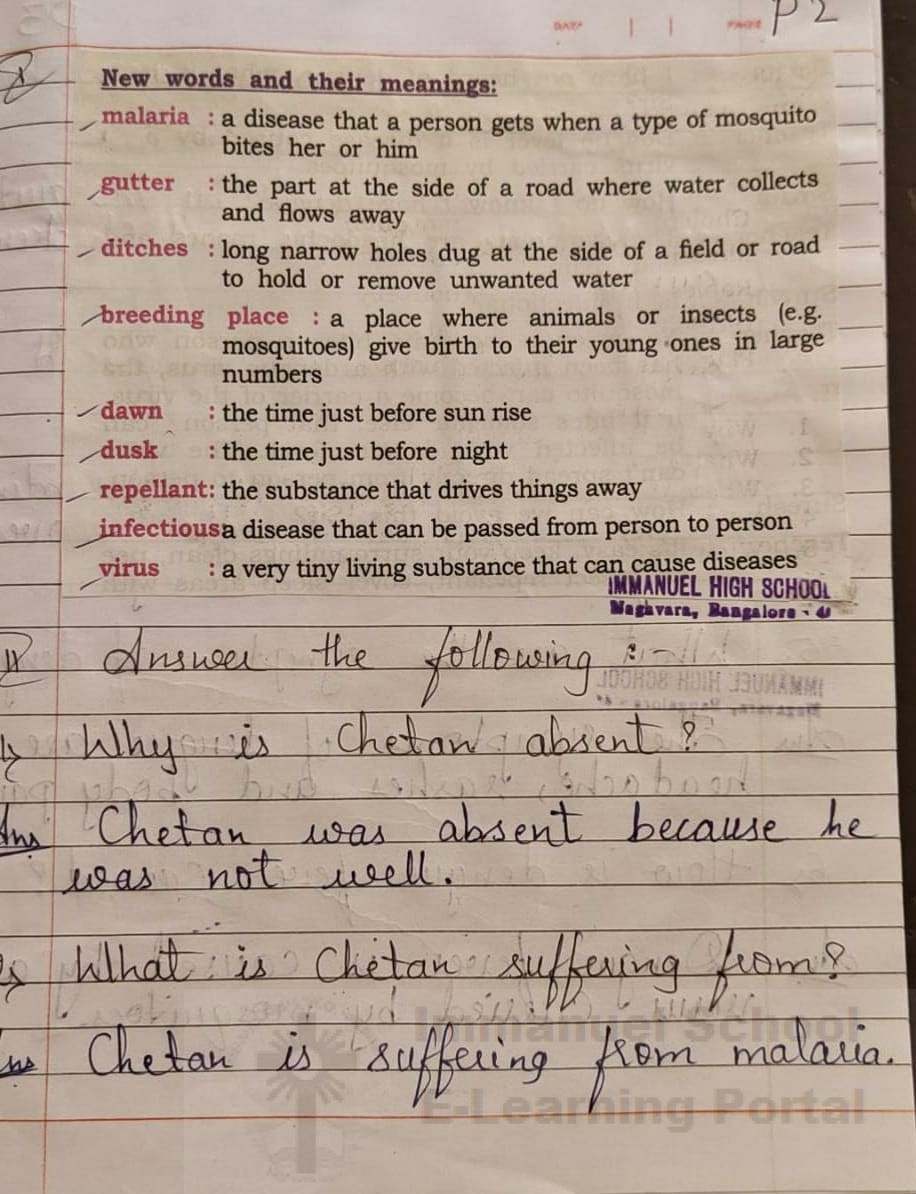 DATE | | PAGE P 2
I
New words and their meanings:
malaria : a disease that a person gets when a type of mosquito
bites her or him
gutter : the part at the side of a road where water collects
and flows away
ditches : long narrow holes dug at the side of a field or road
to hold or remove unwanted water
breeding place : a place where animals or insects (e.g.
mosquitoes) give birth to their young ones in large
numbers
dawn : the time just before sun rise
dusk : the time just before night
repellant: the substance that drives things away
infectiousa disease that can be passed from person to person
virus : a very tiny living substance that can cause diseases
IMMANUEL HIGH SCHOOL
Bangalore -
II Answer the following :-
1) Why is Chetan absent ?
Ans Chetan was absent because he
was not well.
What is Chetan suffering from?
Ans Chetan is suffering from malaria.
Immanuel School
E-Learning Portal